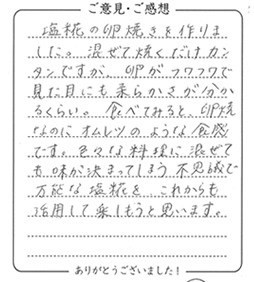 ご意見・ご感想
塩糀の卵焼きを作りま
した。混ぜて焼くだけカン
タンですが、卵がフワフワで
見た目にも柔らかさが分か
るくらい。食べてみると、卵焼
なのにオムレツのような食感
です。色々な料理に混ぜて
も味が決まってしまう不思議で
万能な塩糀を、これからも
活用して楽しもうと思います。
ありがとうございました！